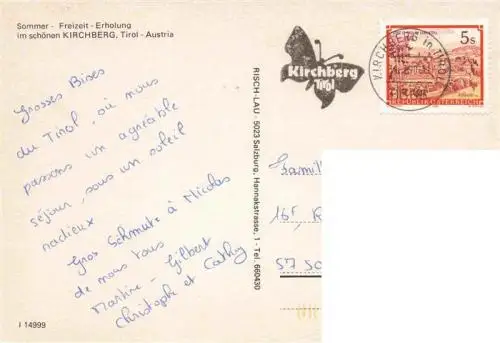 Sommer - Freizeit - Erholung
im schönen KIRCHBERG, Tirol - Austria
Grosses Bises
du Tirol, où nous
passons un agréable
séjour, sous un soleil
radieux
Gros Schmutz à Nicolas
de nous tous
Martine - Gilbert
Christophe et Cathy
I 14999
RISCH-LAU · 5023 Salzburg, Hannakstrasse, 1 - Tel. 660430
Kirchberg
Tirol
KIRCHBERG in TIROL
5s
REPUBLIK ÖSTERREICH
Famill
16
57